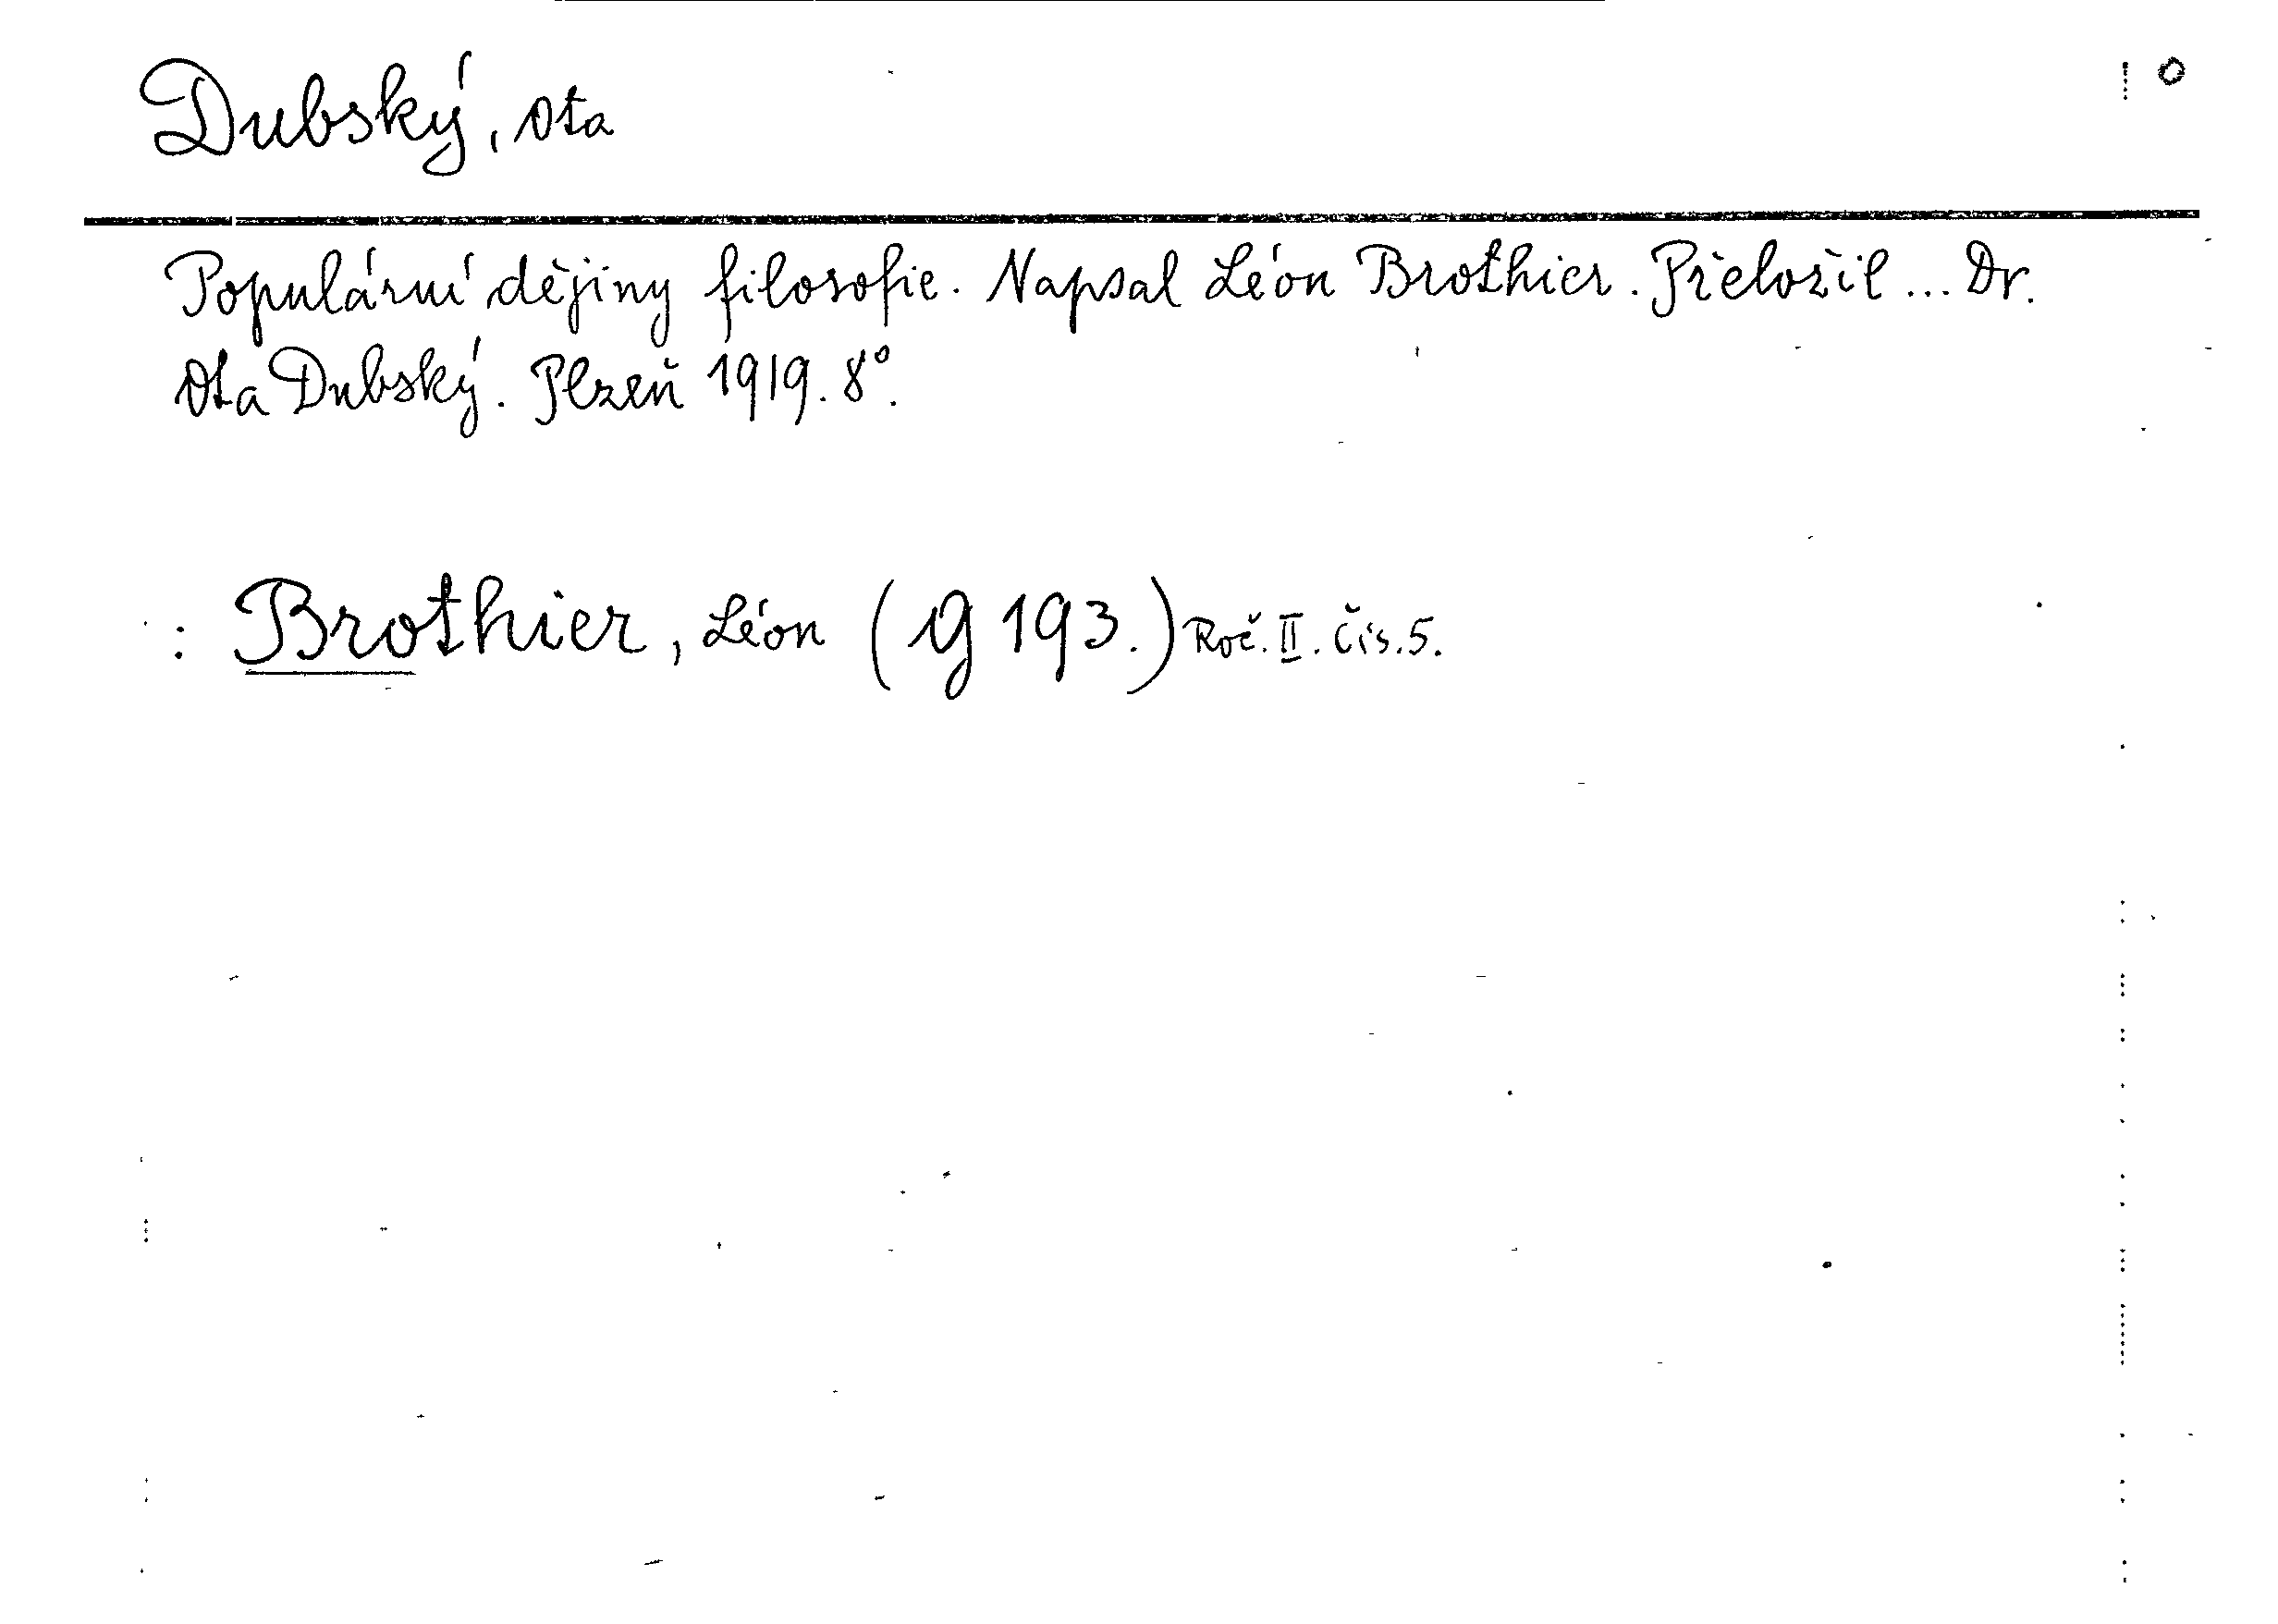 Dubský, Ota
Populární dějiny filosofie. Napsal Léon Brothier. Přeložil ... Dr.
Ota Dubský. Plzeň 1919. 8°.
: Brothier, Léon (g 193.) Roč. II. čís. 5.